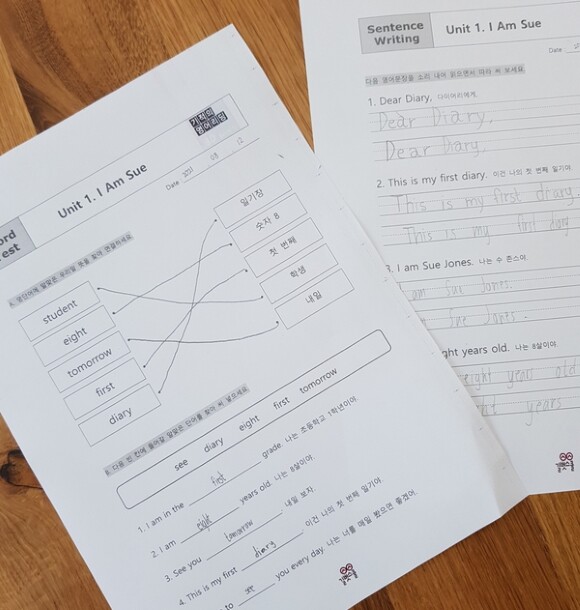 ord
est
Unit 1. I Am Sue
기적의
영어리딩
Date
A. 영단어에 알맞은 우리말 뜻을 찾아 연결하세요.
student
eight
tomorrow
first
diary
일기장
숫자 8
첫 번째
학생
내일
B. 다음 빈 칸에 들어갈 알맞은 단어를 찾아 써 넣으세요.
see diary eight first tomorrow
1. I am in the first grade. 나는 초등학교 1학년이야.
2. I am eight years old. 나는 8살이야.
3. See you tomorrow. 내일 보자.
4. This is my first diary. 이건 나의 첫 번째 일기야.
to see you every day. 나는 너를 매일 봤으면 좋겠어.
Sentence
Writing
Unit 1. I Am Sue
Date
다음 영어문장을 소리 내어 읽으면서 따라 써 보세요.
1. Dear Diary, 다이어리에게,
Dear Diary,
Dear Diary,
2. This is my first diary. 이건 나의 첫 번째 일기야.
This is my first diary
This is my first diary
3. I am Sue Jones. 나는 수 존스야.
am Sue Jones.
Sue Jones.
ght years old. 나는 8살이야.
eight years old
years